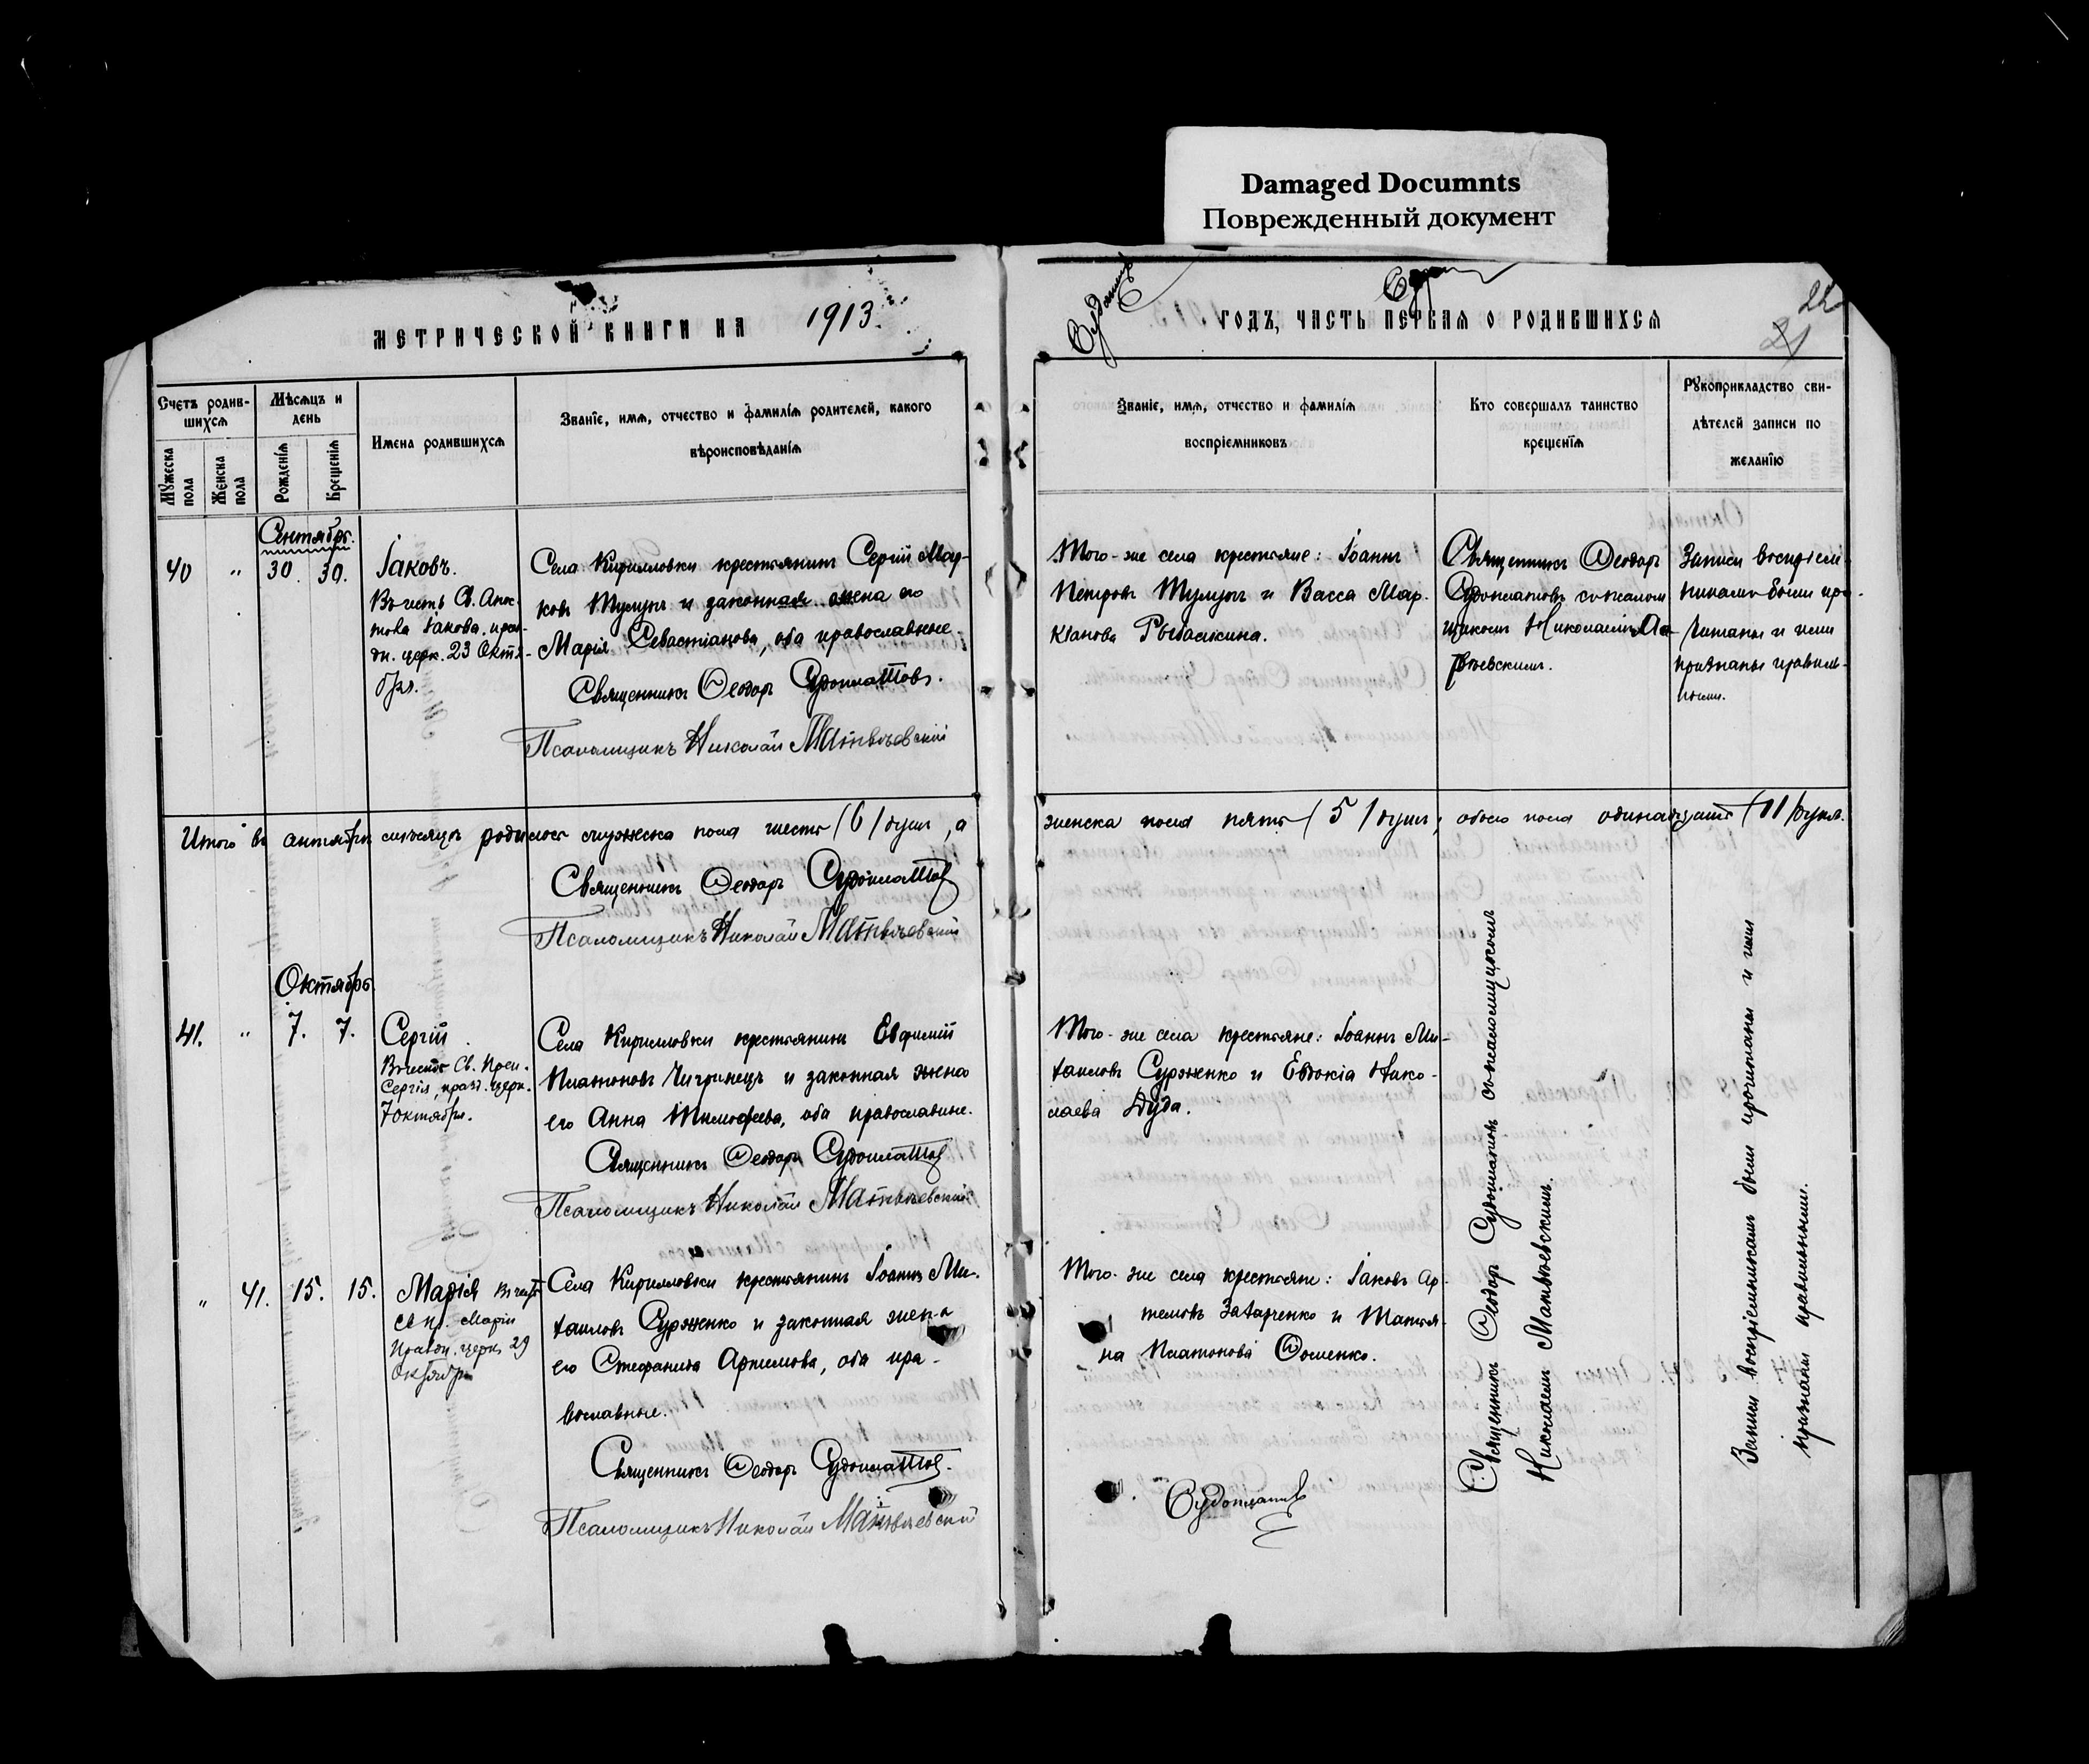 Damaged Documnts
Поврежденный документ
МЕТРИЧЕСКОЙ КНИГИ НА 1913.
ГОДЪ, ЧАСТЬ ПЕРВАЯ О РОДИВШИХСЯ
22
21
Счетъ родив-
шихся
Мужеска пола
Женска пола
Мѣсяцъ и
день
Рожденія
Крещенія
Имена родившихся
Званіе, имя, отчество и фамилія родителей, какого
вѣроисповѣданія
Званіе, имя, отчество и фамилія
воспріемниковъ
Кто совершалъ таинство
крещенія
Рукоприкладство сви-
дѣтелей записи по
желанію
Сентябрь.
40 " 30. 30.
Іаковъ.
Въ честь Св. Апос-
тола Іакова. праз-
дн. церк. 23 Октя-
бря.
Села Кирилловки крестьянинъ Сергій Мар-
ковъ Тулупъ и законная жена его
Марія Севастіанова, оба православные.
Священникъ Ѳеодоръ Судоплатовъ.
Псаломщикъ Николай Матвѣевскій
Того-же села крестьяне: Іоаннъ
Петровъ Тулупъ и Васса Мар-
кіанова Рыбалкина.
Священникъ Ѳеодоръ
Судоплатовъ съ псалом
щикомъ Николаемъ Ма-
твѣевскимъ.
Записи воспріем-
никамъ были про-
читаны и ими
признаны правиль-
ными.
Итого въ сентябрѣ мѣсяцѣ родилось мужеска пола шесть /6/ душъ, а
женска пола пять /5/ душъ, обоего пола одинадцать /11/ душъ.
Священникъ Ѳеодоръ Судоплатовъ
Псаломщикъ Николай Матвѣевскій
Октябрь.
41. " 7. 7.
Сергій.
Въ честь Св. Преп.
Сергія, празд. церк.
7 октября.
Села Кирилловки крестьянинъ Евфимій
Платоновъ Чигринецъ и законная жена
его Анна Тимофеева, оба православные.
Священникъ Ѳеодоръ Судоплатовъ
Псаломщикъ Николай Матвѣевскій
Того-же села крестьяне: Іоаннъ Ми-
хаиловъ Сурженко и Евдокія Нико-
лаева Дуда.
" 41. 15. 15.
Марія Въ честь
Св. пр. Маріи
Праздн. церк. 29
Октября
Села Кирилловки крестьянинъ Іоаннъ Ми-
хаиловъ Сурженко и законная жена
его Стефанида Артемова, оба пра-
вославные.
Священникъ Ѳеодоръ Судоплатовъ.
Псаломщикъ Николай Матвѣевскій
Того-же села крестьяне: Іаковъ Ар-
темовъ Захарченко и Татья-
на Платонова Ѳоменко.
Судоплатовъ
Священникъ Ѳеодоръ Судоплатовъ съ псаломщикомъ
Николаемъ Матвѣевскимъ.
Записи воспріемникамъ были прочитаны и ими
признаны правильными.